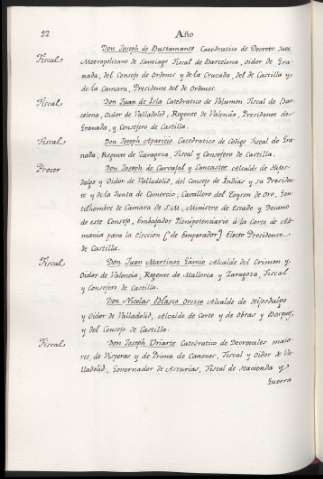 92 Año
Don Joseph de Bustamante Catedratico de Decreto Juez
Fiscal Metropolitano de Santiago Fiscal de Barcelona, oidor de Gra-
nada, del Consejo de Ordenes y de la Cruzada, del de Castilla y
de la Camara, Presidente del de Ordenes.
Fiscal Don Juan de Isla Catedratico de Volumen Fiscal de Bar-
celona, Oidor de Valladolid, Regente de Valencia, Presidente de
Granada, y Consejero de Castilla.
Fiscal Don Joseph Aparicio Catedratico de Codigo Fiscal de Gra
nada, Regente de Zaragoza, Fiscal y Consejero de Castilla.
Rector Don Joseph de Carvajal y Lancaster Alcalde de Hijos-
dalgo y Oidor de Valladolid, del Consejo de Indias y su Presiden
te y de la Junta de Comercio, Cavallero del Toyson de Oro, Gen
tilhombre de Camara de S.M., Ministro de Estado y Decano
de este Consejo, Embajador Plenipotenciario à la Corte de Ale
mania para la Eleccion (de Emperador) Electo Presidente
de Castilla.
Fiscal Don Juan Martinez Alcalde del Crimen y
Oidor de Valencia, Regente de Mallorca y Zaragoza, Fiscal
y Consejero de Castilla.
Don Nicolas Blasco Orozco Alcalde de Hijosdalgo
y Oidor de Valladolid, Alcalde de Corte y de Obras y Bosques,
y del Consejo de Castilla.
Fiscal Don Joseph Uriarte Catedratico de Decretales maio
res, de Visperas y de Prima de Canones, Fiscal y Oidor de Va-
lladolid, Governador de Asturias, Fiscal de Hacienda y
Guerra